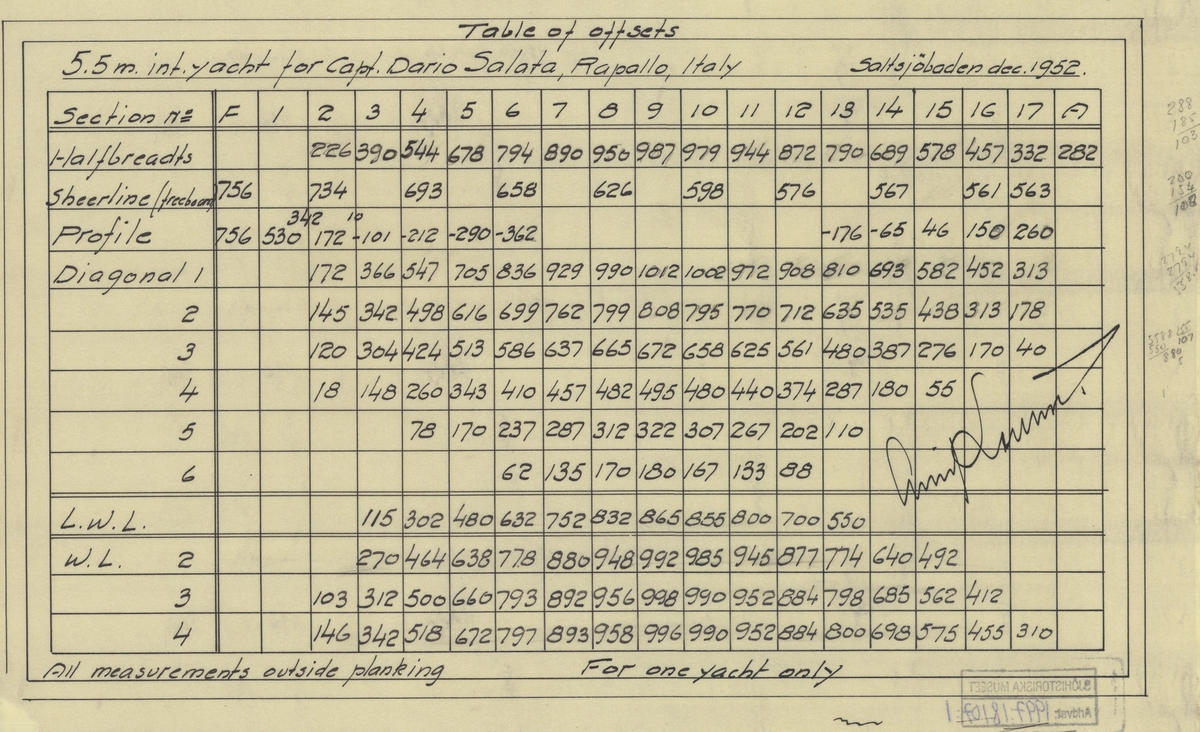 Table of offsets
5.5 m. int. yacht for Capt. Dario Salata, Rapallo, Italy Saltsjöbaden dec. 1952.
Section No F 1 2 3 4 5 6 7 8 9 10 11 12 13 14 15 16 17 A
Halfbreadts 226 390 544 678 794 890 950 987 979 944 872 790 689 578 457 332 282
Sheerline (freeboard) 756 734 693 658 626 598 576 567 561 563
342 10
Profile 756 530 172 -101 -212 -290 -362 -176 -65 46 150 260
Diagonal 1 172 366 547 705 836 929 990 1012 1002 972 908 810 693 582 452 313
2 145 342 498 616 699 762 799 808 795 770 712 635 535 438 313 178
3 120 304 424 513 586 637 665 672 658 625 561 480 387 276 170 40
4 18 148 260 343 410 457 482 495 480 440 374 287 180 55
5 78 170 237 287 312 322 307 267 202 110
6 62 135 170 180 167 133 88
L.W.L. 115 302 480 632 752 832 865 855 800 700 550
W.L. 2 270 464 638 778 880 948 992 985 945 877 774 640 492
3 103 312 500 660 793 892 956 998 990 952 884 798 685 562 412
4 146 342 518 672 797 893 958 996 990 952 884 800 698 575 455 310
All measurements outside planking For one yacht only
SJÖHISTORISKA MUSEET